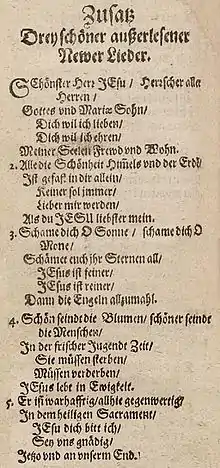 Zusatz
Drey schöner außerlesener
Newer Lieder.
SChönster Herr JEsu / Herrscher aller
Herren /
Gottes vnd Mariæ Sohn /
Dich wil ich lieben /
Dich wil ich ehren /
Meiner Seelen Frewd vnd Wohn.
2. Alle die Schönheit Him̃els vnd der Erdē /
Ist gefast in dir allein /
Keiner sol immer /
Lieber mir werden /
Als du JESU liebster mein.
3. Schame dich O Sonne / schame dich O
Mone /
Schämet euch jhr Sternen all /
JEsus ist feiner /
JEsus ist reiner /
Dann die Engeln allzumahl.
4. Schön seindt die Blumen / schöner seindt
die Menschen /
In der frischer Jugendt Zeit /
Sie müssen sterben /
Müssen verderben /
JEsus lebt in Ewigkeit.
5. Er ist warhafftig / allhie gegenwertig /
In dem heiligen Sacrament /
JEsu dich bitt ich /
Sey vns gnädig /
Jetzo vnd an vnserm End. !